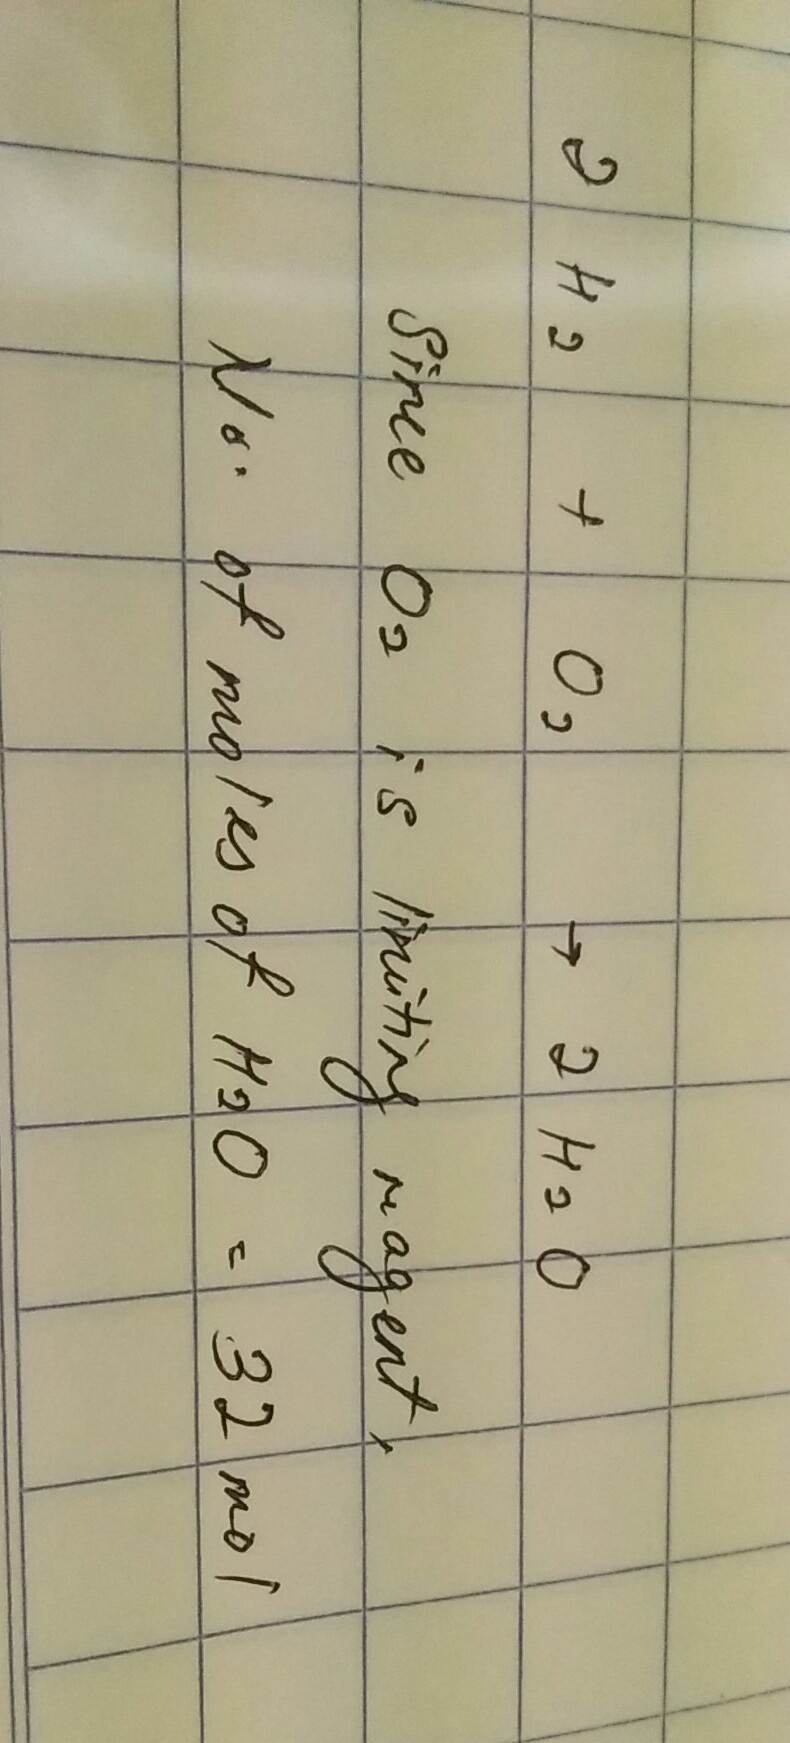 2 H2 + O2 → 2 H2O
Since O2 is limiting reagent,
No. of moles of H2O = 32 mol